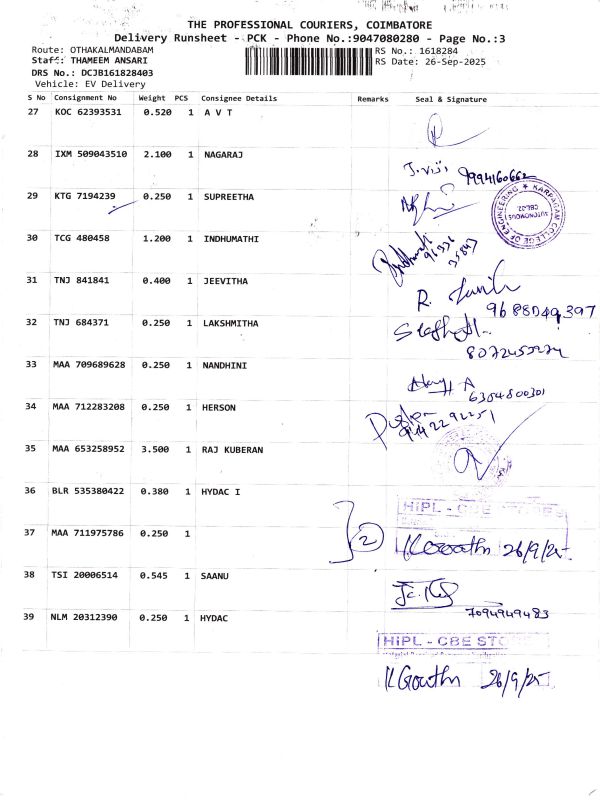 THE PROFESSIONAL COURIERS, COIMBATORE
Delivery Runsheet - PCK - Phone No.:9047080280 - Page No.:3
Route: OTHAKALMANDABAM
RS No.: 1618284
Staff: THAMEEM ANSARI
RS Date: 26-Sep-2025
DRS No.: DCJB161828403
Vehicle: EV Delivery
S No Consignment No Weight PCS Consignee Details Remarks Seal & Signature
27 KOC 62393531 0.520 1 A V T
28 IXM 509043510 2.100 1 NAGARAJ
J.viji 9994160662
29 KTG 7194239 0.250 1 SUPREETHA
KARPAGAM COLLEGE OF ENGINEERING
AUTONOMOUS
30 TCG 480458 1.200 1 INDHUMATHI
31 TNJ 841841 0.400 1 JEEVITHA
R.
9688049397
32 TNJ 684371 0.250 1 LAKSHMITHA
33 MAA 709689628 0.250 1 NANDHINI
6384800301
34 MAA 712283208 0.250 1 HERSON
35 MAA 653258952 3.500 1 RAJ KUBERAN
36 BLR 535380422 0.380 1 HYDAC I
HIPL - CBE STORES
37 MAA 711975786 0.250 1
2
26/9/25
38 TSI 20006514 0.545 1 SAANU
7094949483
39 NLM 20312390 0.250 1 HYDAC
HIPL - CBE STO
K Gowthm 26/9/25